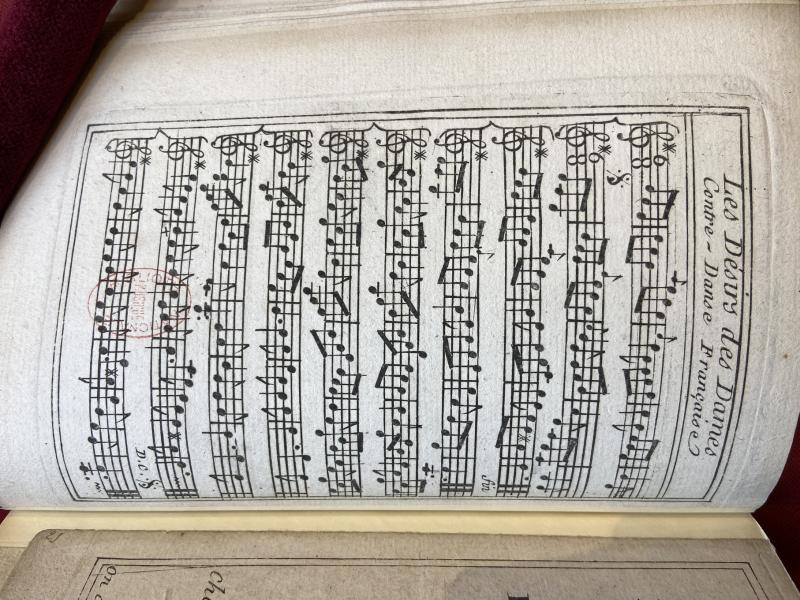 Les Désirs des Dames
Contre-Danse Française
6
8
6
8
fin
D.C.
on
che